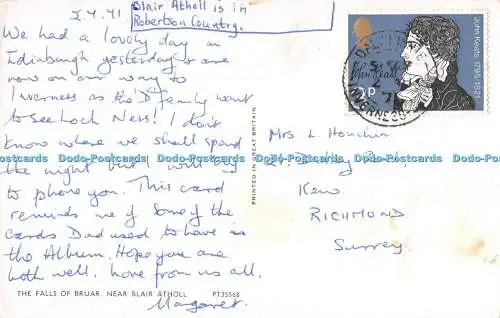 2.4.71
Blair Atholl is in
Robertson Country.
We had a lovely day in
Edinburgh yesterday & are
now on our way to
Inverness as the D family want
to see Loch Ness! I don't
know where we shall spend
the night but will try
to phone you. This card
reminds me of some of the
cards Dad used to have in
the Album. Hope you are
both well. Love from us all,
Margaret.
THE FALLS OF BRUAR. NEAR BLAIR ATHOLL PT35568
PRINTED IN GREAT BRITAIN
John Keats 1795-1821
3p
INVERNESS
Mrs L Houchin
Kew
RICHMOND
Surrey.
Do-Postcards Do-Postcards Do-Postcards Do-Postcards Do-Postcards